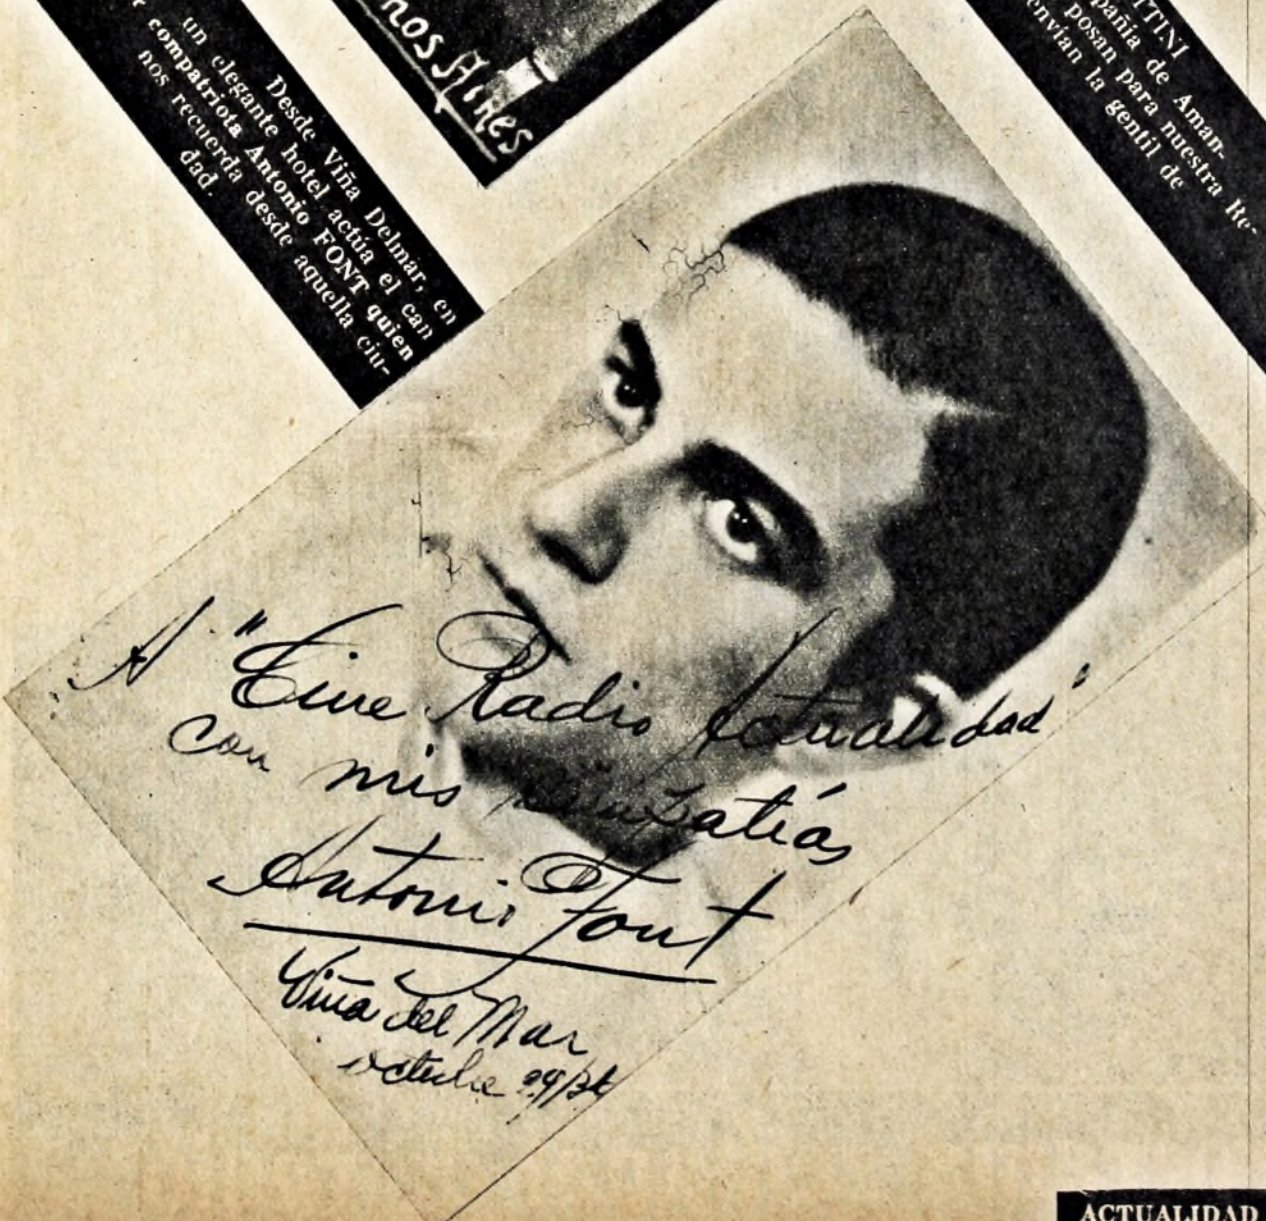 nos Aires
Desde Viña Delmar, en
un elegante hotel actúa el can
r compatriota Antonio FONT quien
nos recuerda desde aquella ciu-
dad.
TTINI
pañia de Aman-
posan para nuestra Re-
envían la gentil de
A "Cine Radio Actualidad"
con mis simpatías
Antonio Font
Viña del Mar
octubre 29/36
ACTUALIDAD